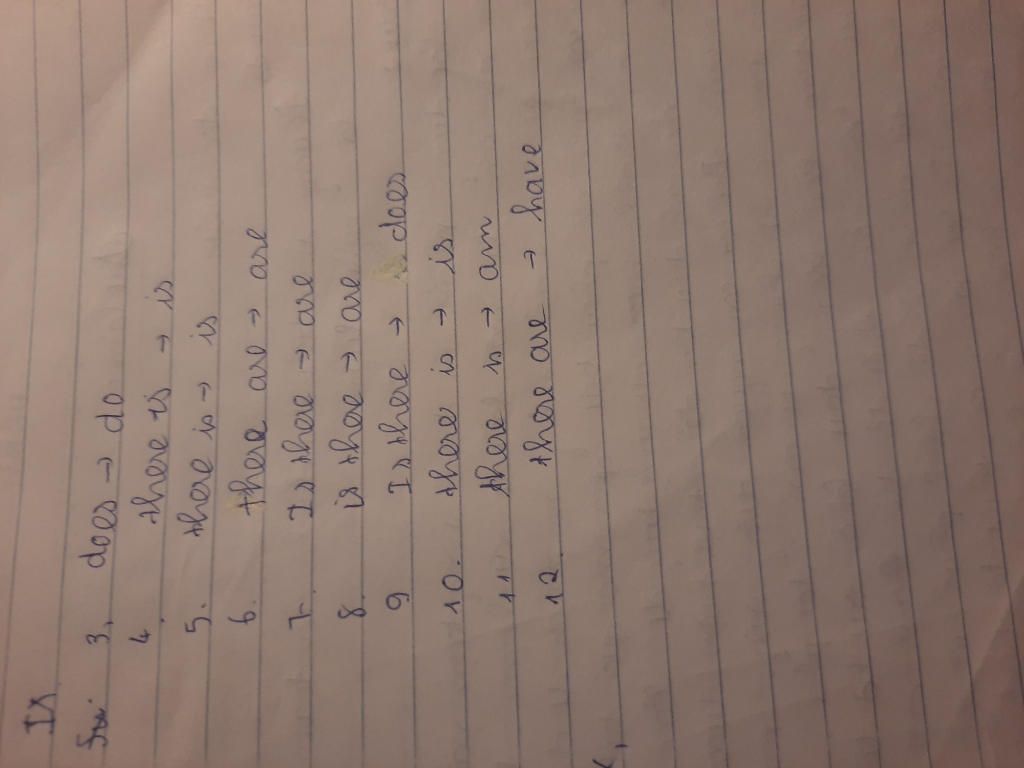 IX
3, does → do
4 there is → is
5. there is → is
6. there are → are
7. Is there → are
8. is there → are
9 Is there → does
10. there is → is
11 there is → am
12 there are → have